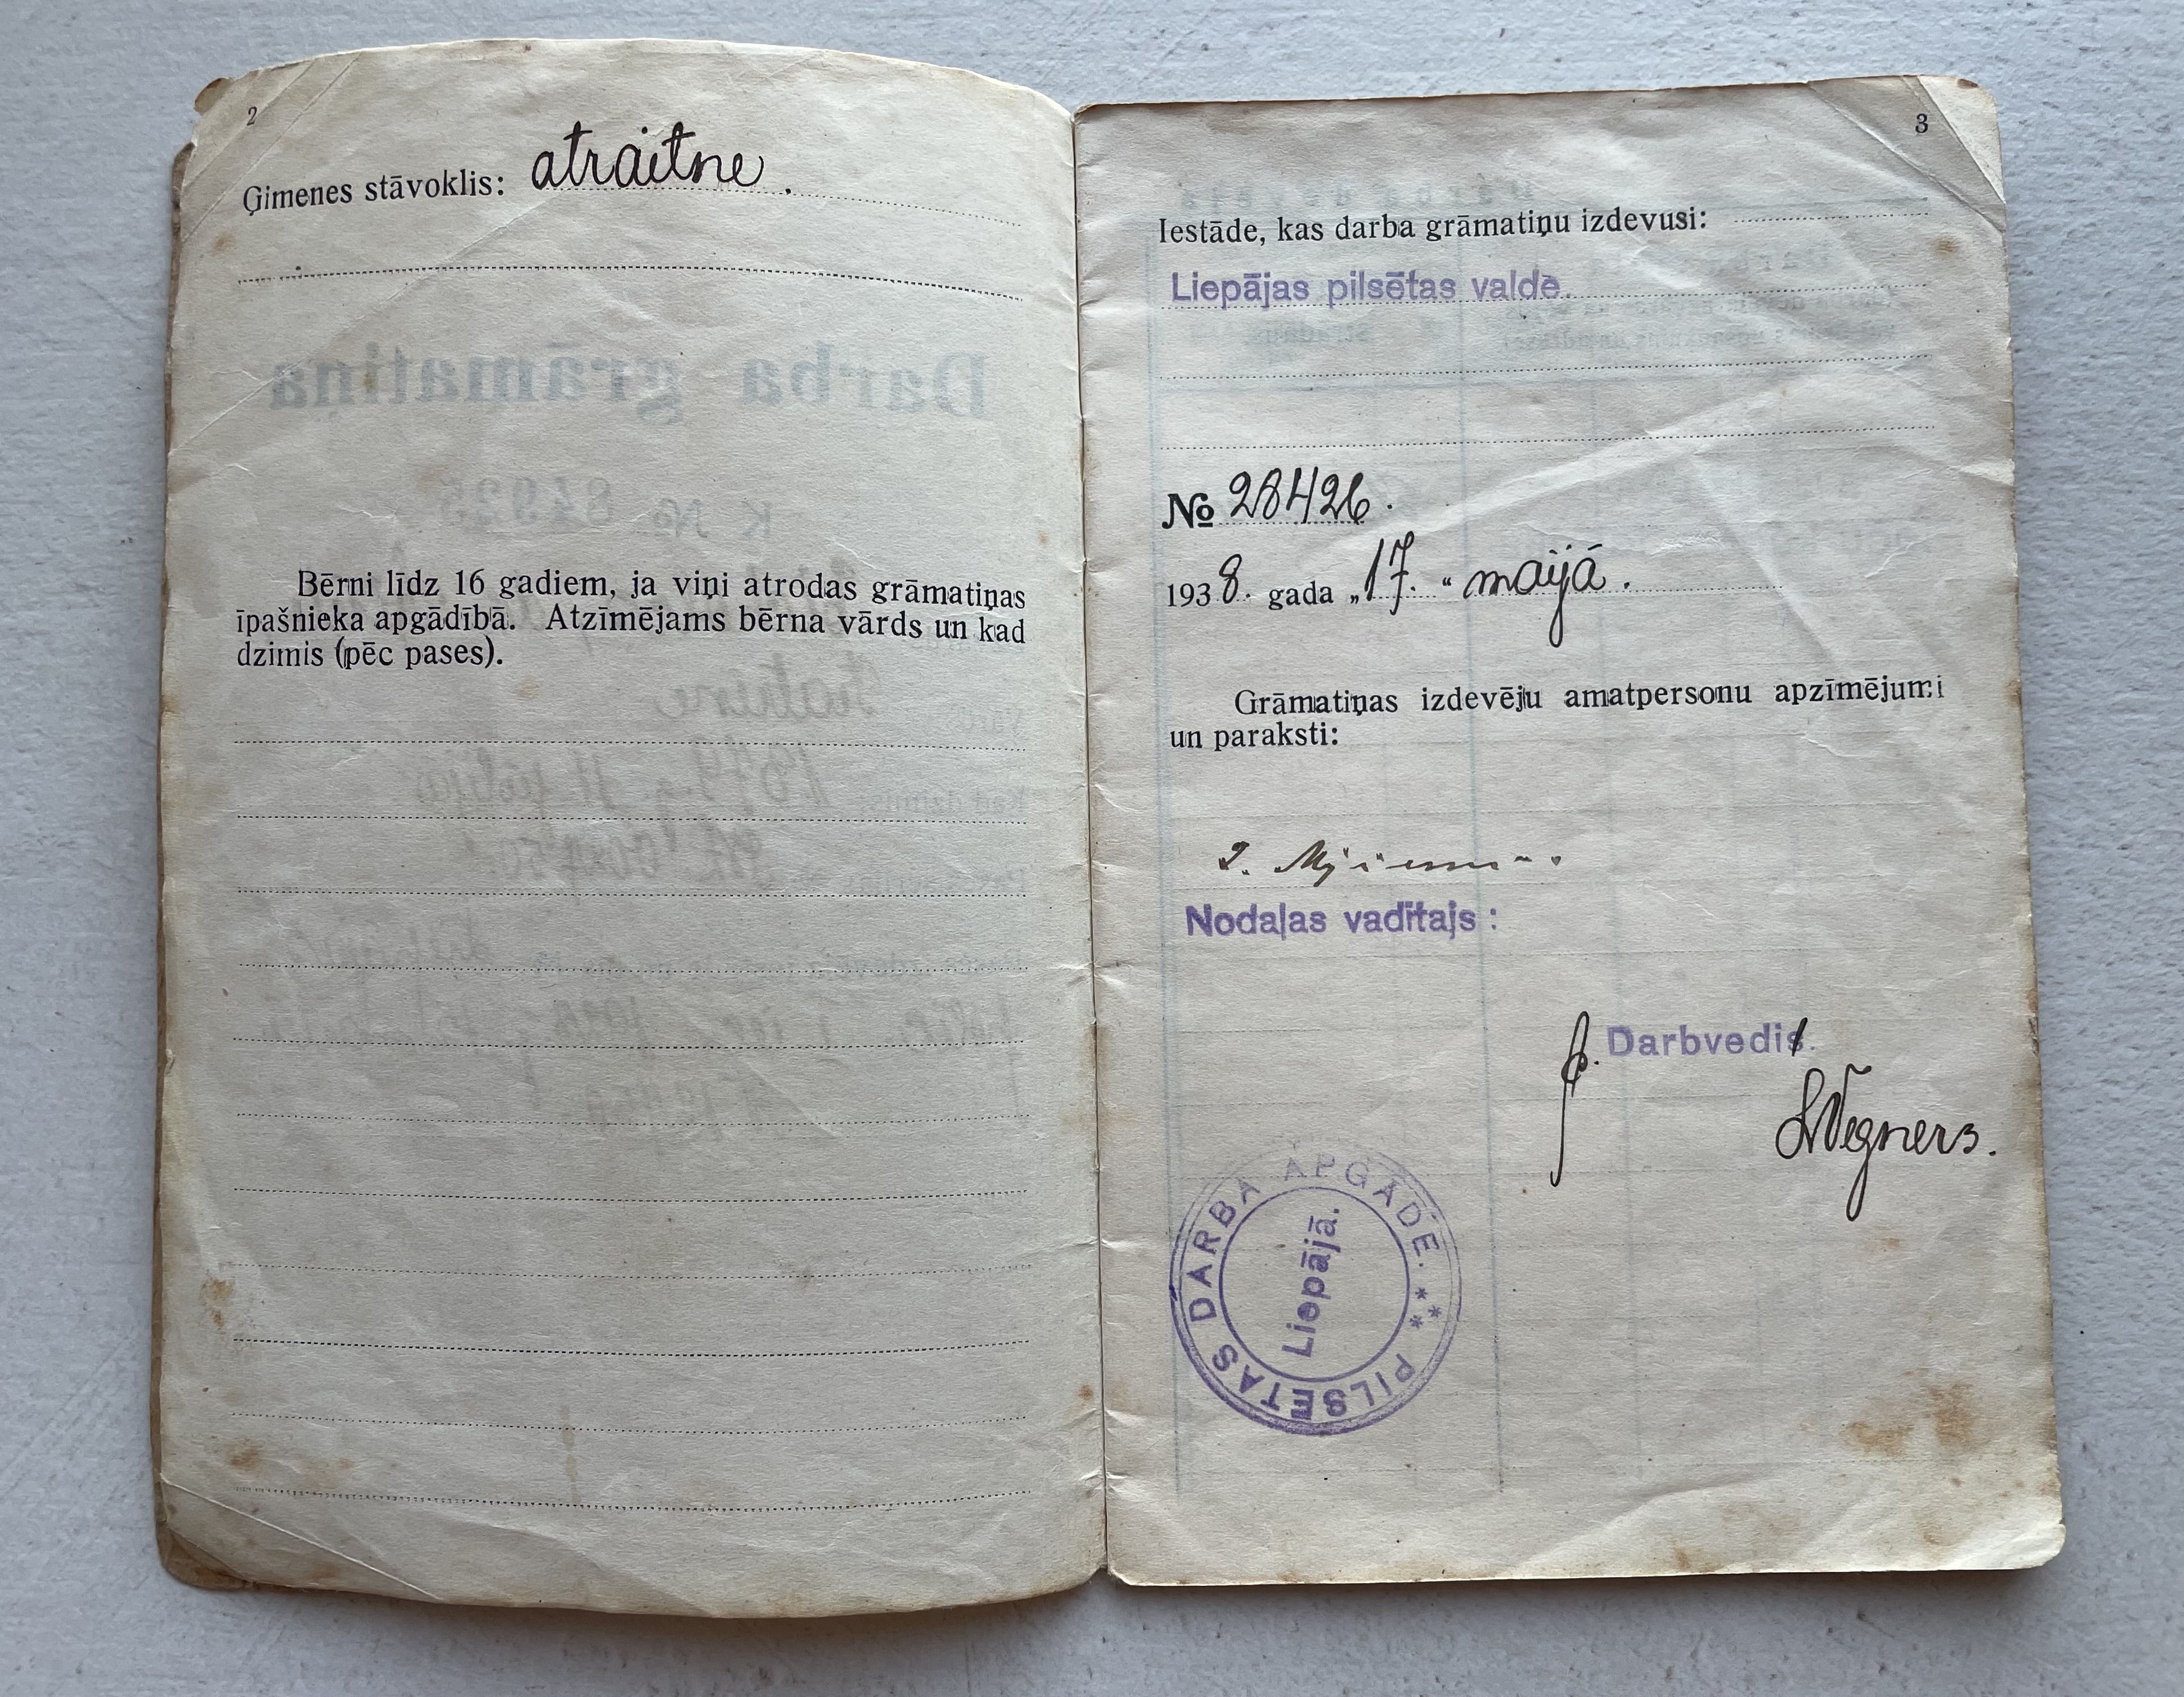 2
Ģimenes stāvoklis: atraitne.
Bērni līdz 16 gadiem, ja viņi atrodas grāmatiņas
īpašnieka apgādībā. Atzīmējams bērna vārds un kad
dzimis (pēc pases).
3
Iestāde, kas darba grāmatiņu izdevusi:
Liepājas pilsētas valde.
№ 28426.
1938. gada „17.“ maijā.
Grāmatiņas izdevēju amatpersonu apzīmējumi
un paraksti:
Nodaļas vadītajs:
p. Darbvedis.
Vegners.
PILSETAS DARBA APGĀDE. ***
Liepājā.
Darba grāmatiņa
K № 84925